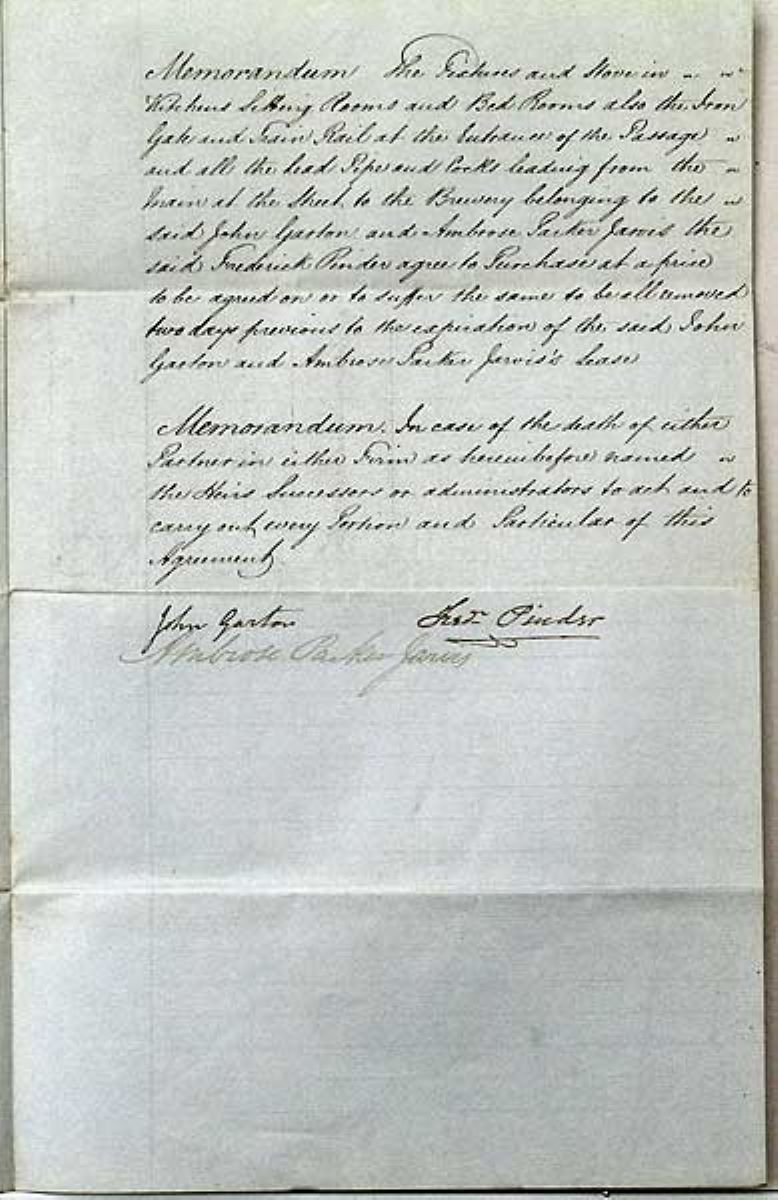 Memorandum The Fixtures and Stove in " "
Kitchens Sitting Rooms and Bed Rooms also the Iron
Gate and Train Rail at the Entrance of the Passage "
and all the lead Pipe and Cocks leading from the "
Main at the Street to the Brewery belonging to the "
said John Garton and Ambrose Parker Jarvis the
said Frederick Pinder agree to Purchase at a price
to be agreed on or to suffer the same to be all removed
two days previous to the expiration of the said John
Garton and Ambrose Parker Jarvis's Lease
Memorandum. In case of the death of either
Partner in either Firm as hereinbefore named "
the Heirs Successors or administrators to act and to
carry out every Portion and Particular of this
Agreement
John Garton Fredk Pinder
Ambrose Parker Jarvis